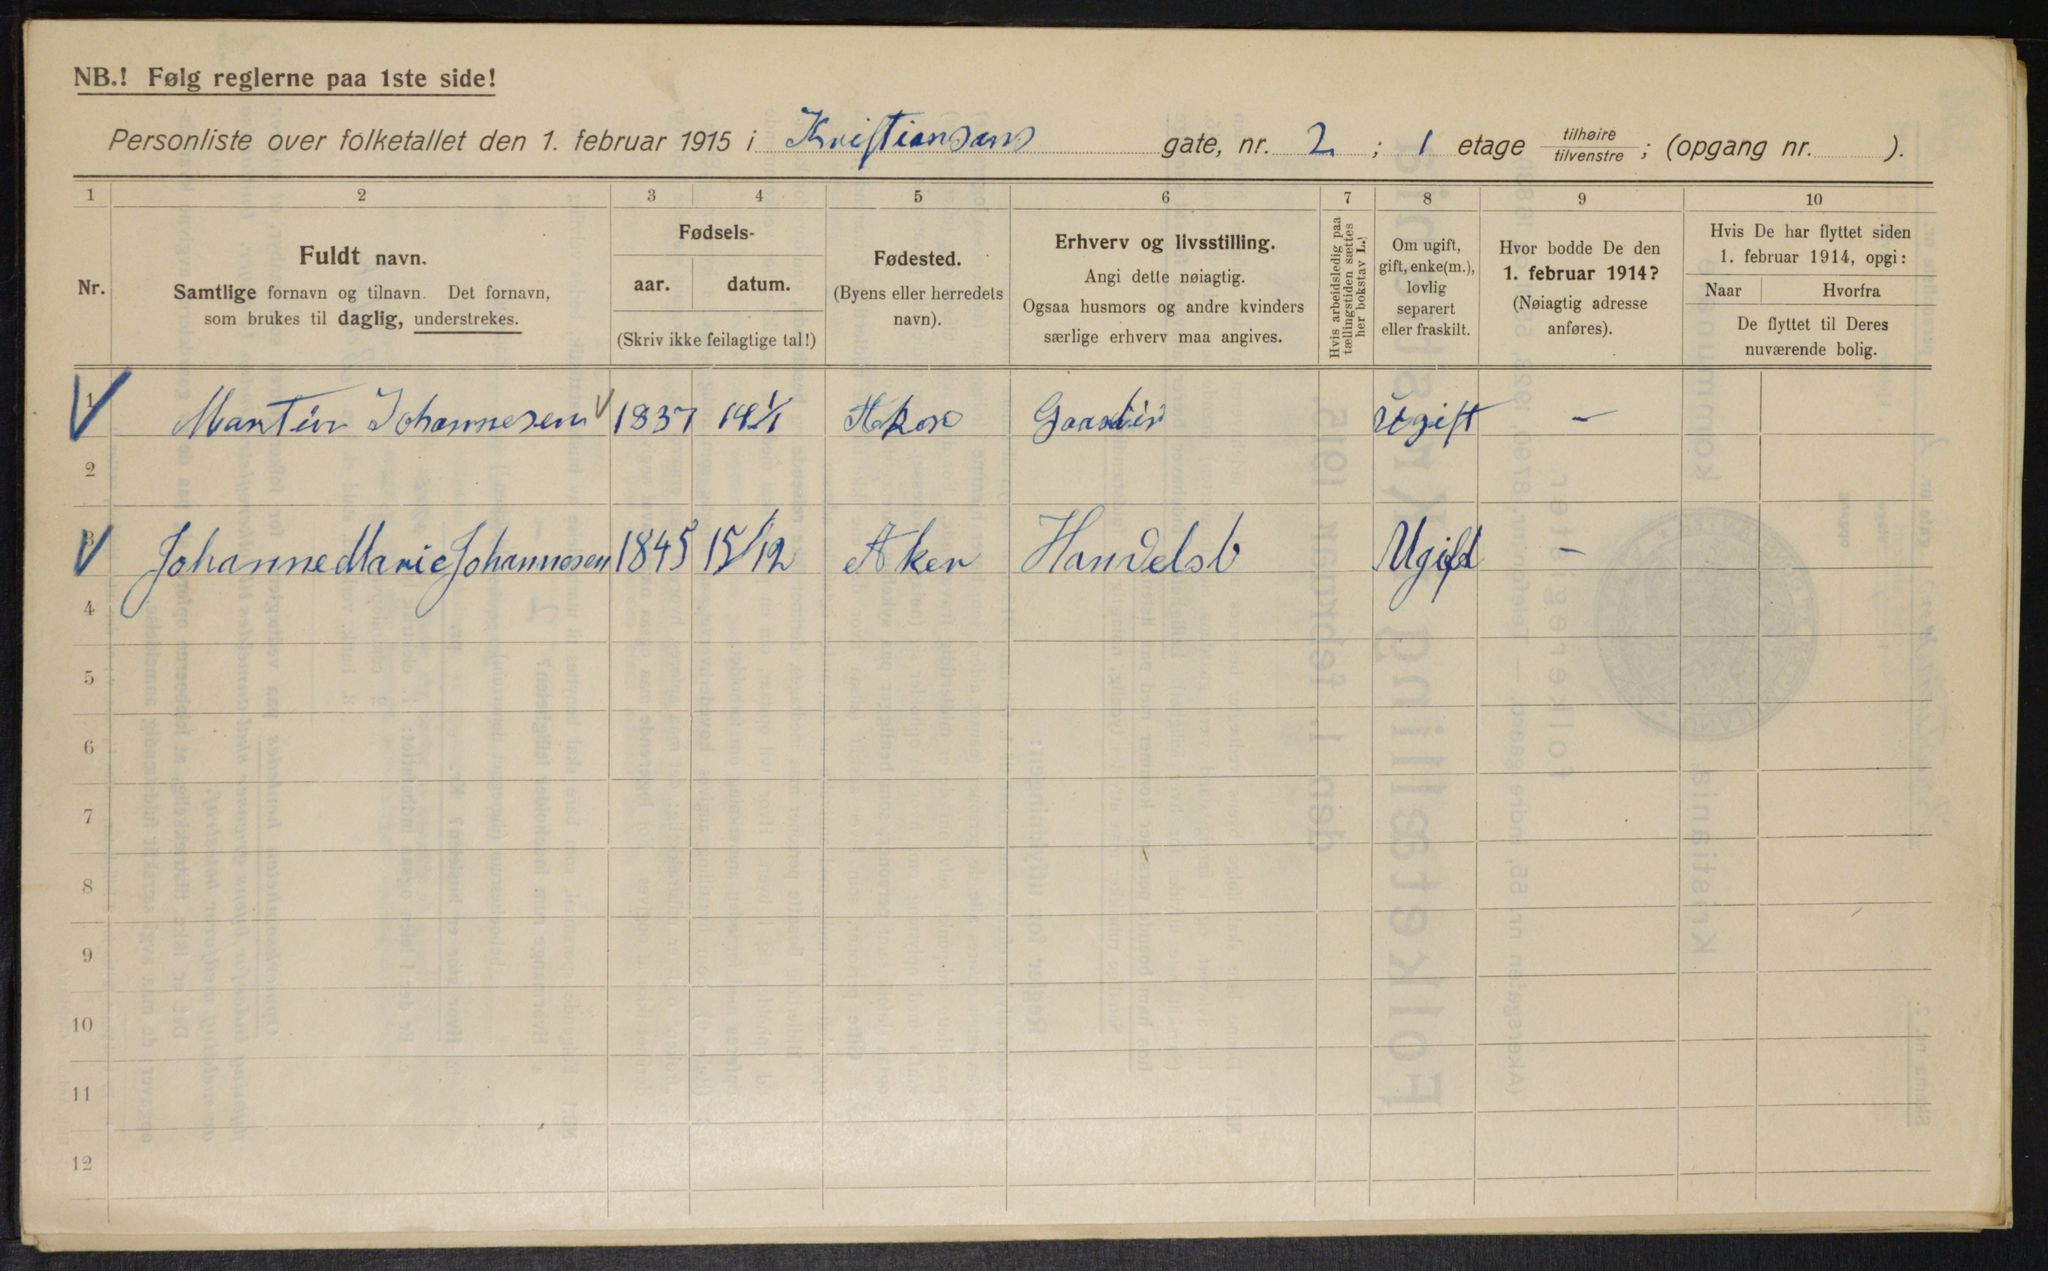 NB.! Følg reglerne paa 1ste side!
Personliste over folketallet den 1. februar 1915 i Kristiansans gate, nr. 2 ; 1 etage tilhøire / tilvenstre ; (opgang nr. ).
1 2 3 4 5 6 7 8 9 10
Nr.
Fuldt navn.
Samtlige fornavn og tilnavn. Det fornavn,
som brukes til daglig, understrekes.
Fødsels-
aar. datum.
(Skriv ikke feilagtige tal!)
Fødested.
(Byens eller herredets
navn).
Erhverv og livsstilling.
Angi dette nøiagtig.
Ogsaa husmors og andre kvinders
særlige erhverv maa angives.
Hvis arbeidsledig paa
tællingstiden sættes
her bokstav L.!
Om ugift,
gift, enke(m.),
lovlig
separert
eller fraskilt.
Hvor bodde De den
1. februar 1914?
(Nøiagtig adresse
anføres).
Hvis De har flyttet siden
1. februar 1914, opgi:
Naar Hvorfra
De flyttet til Deres
nuværende bolig.
1 Martin Johannesen 1837 14/1 Aker Ugift –
2
3 Johanne Marie Johannesen 1845 15/12 Aker Handelsb Ugift –
4
5
6
7
8
9
10
11
12